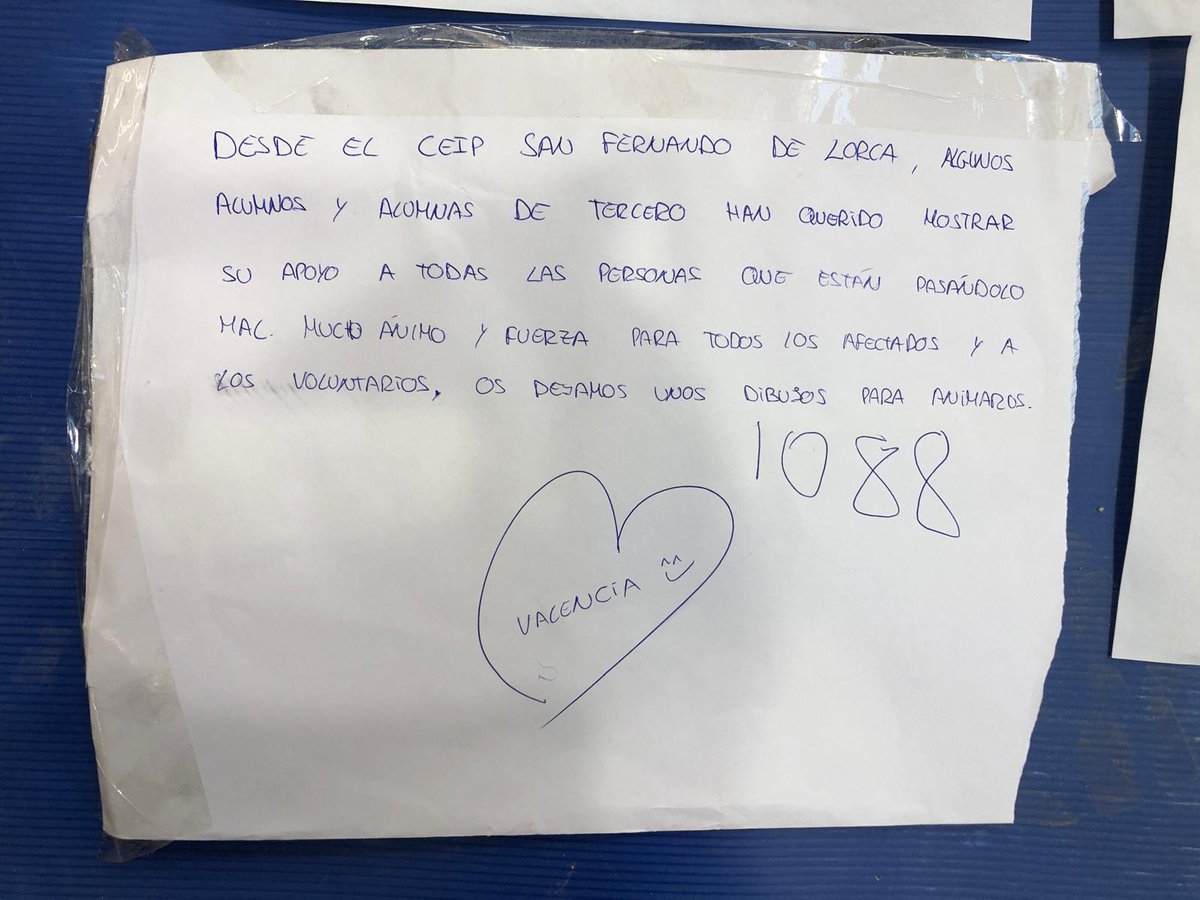 DESDE EL CEIP SAN FERNANDO DE LORCA, ALGUNOS
ALUMNOS Y ALUMNAS DE TERCERO HAN QUERIDO MOSTRAR
SU APOYO A TODAS LAS PERSONAS QUE ESTÁN PASÁNDOLO
MAL. MUCHO ÁNIMO Y FUERZA PARA TODOS LOS AFECTADOS Y A
LOS VOLUNTARIOS, OS DEJAMOS UNOS DIBUJOS PARA ANIMAROS.
1088
VALENCIA